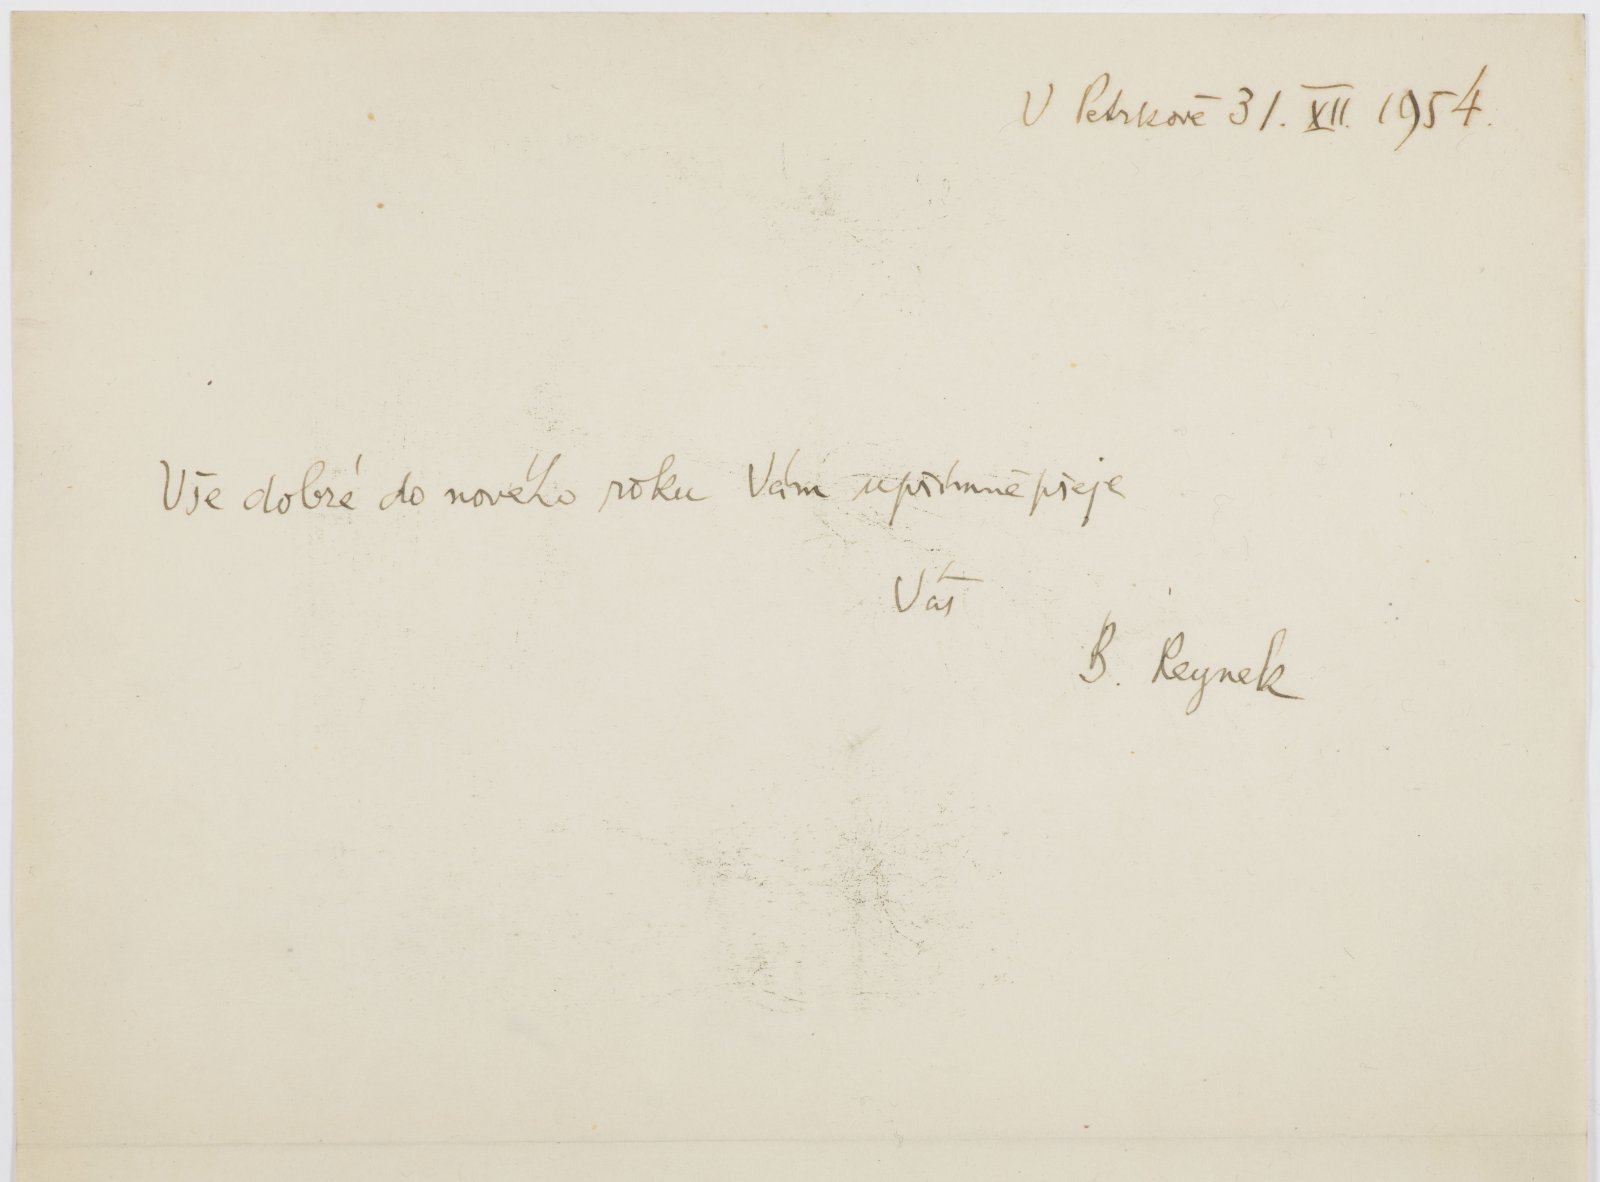 V Petrkově 31. XII. 1954.
Vše dobré do nového roku Vám upřímně přeje
Váš
B. Reynek